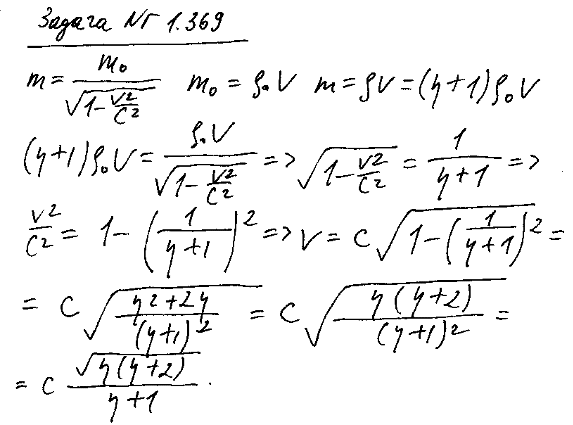 Задача № 1.369
m = m₀/√(1 - v²/c²) m₀ = ρ₀V m = ρV = (η+1)ρ₀V
(η+1)ρ₀V = ρ₀V/√(1 - v²/c²) => √(1 - v²/c²) = 1/(η+1) =>
v²/c² = 1 - (1/(η+1))² => v = c√(1 - (1/(η+1))²) =
= c√((η²+2η)/(η+1)²) = c√(η(η+2)/(η+1)²) =
= c √(η(η+2))/(η+1).